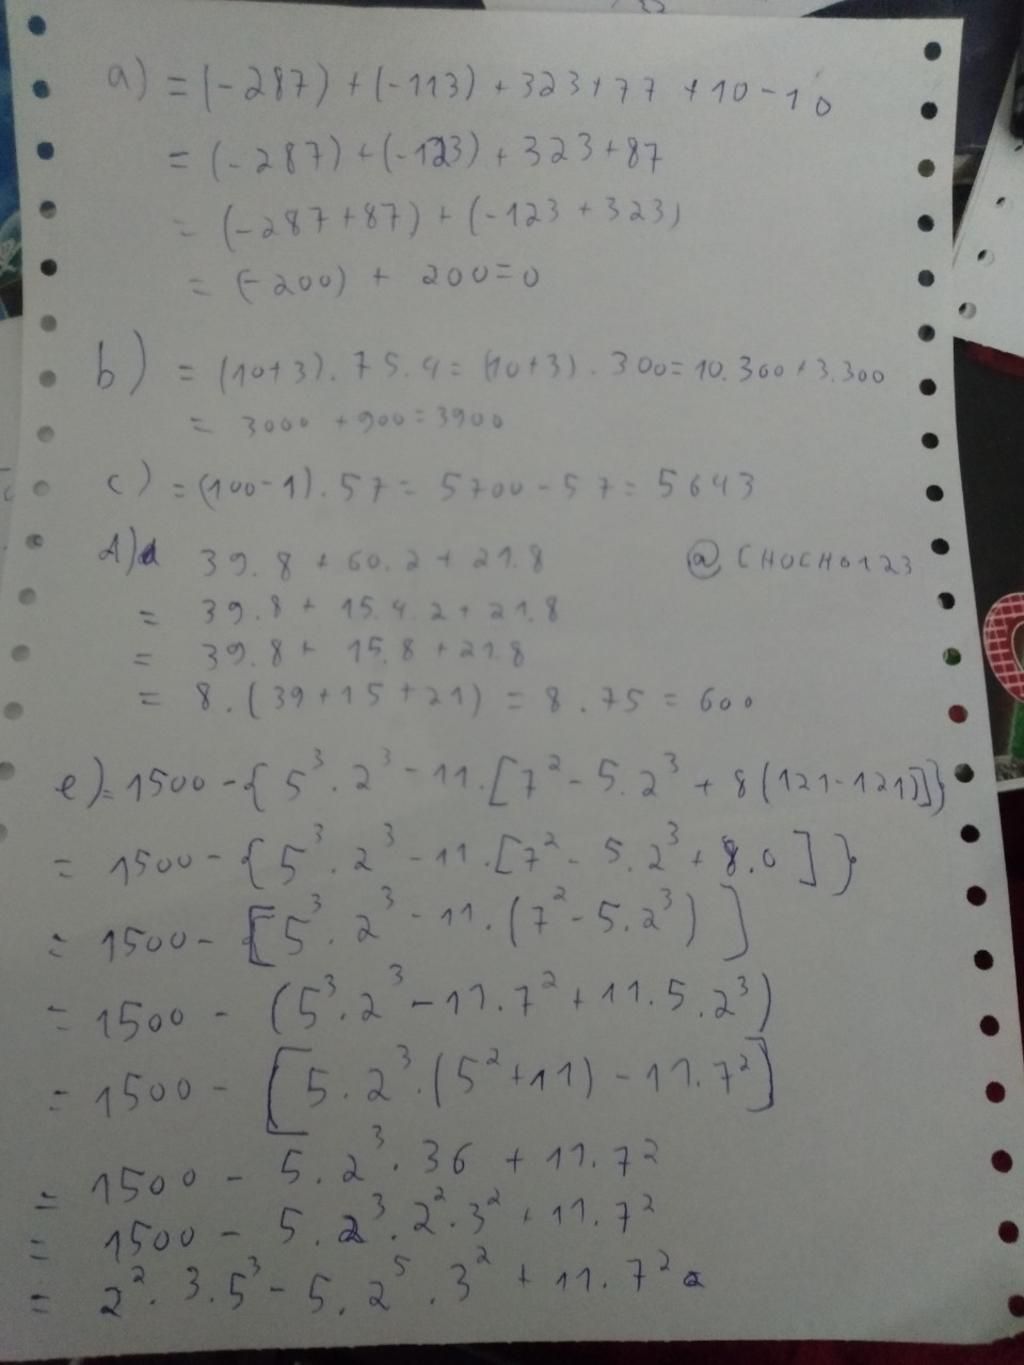 a) = (-287) + (-113) + 323 + 77 + 10 - 10
= (-287) + (-123) + 323 + 87
= (-287 + 87) + (-123 + 323)
= (-200) + 200 = 0
b) = (10+3) . 75 . 4 = (10+3) . 300 = 10.300 + 3.300
= 3000 + 900 = 3900
c) = (100-1) . 57 = 5700 - 57 = 5643
d) 39.8 + 60.2 + 21.8
@CHOCHO123
= 39.8 + 15.4.2 + 21.8
= 39.8 + 15.8 + 21.8
= 8 . (39 + 15 + 21) = 8 . 75 = 600
e) = 1500 - {5³ . 2³ - 11 . [7² - 5.2³ + 8(121-121)]}
= 1500 - {5³ . 2³ - 11 . [7² - 5.2³ + 8.0]}
= 1500 - [5³ . 2³ - 11 . (7² - 5.2³)]
= 1500 - (5³ . 2³ - 11.7² + 11.5.2³)
= 1500 - [5 . 2³ . (5² + 11) - 11.7²]
= 1500 - 5 . 2³ . 36 + 11.7²
= 1500 - 5 . 2³ . 2² . 3² + 11.7²
= 2² . 3 . 5³ - 5 . 2⁵ . 3² + 11.7²